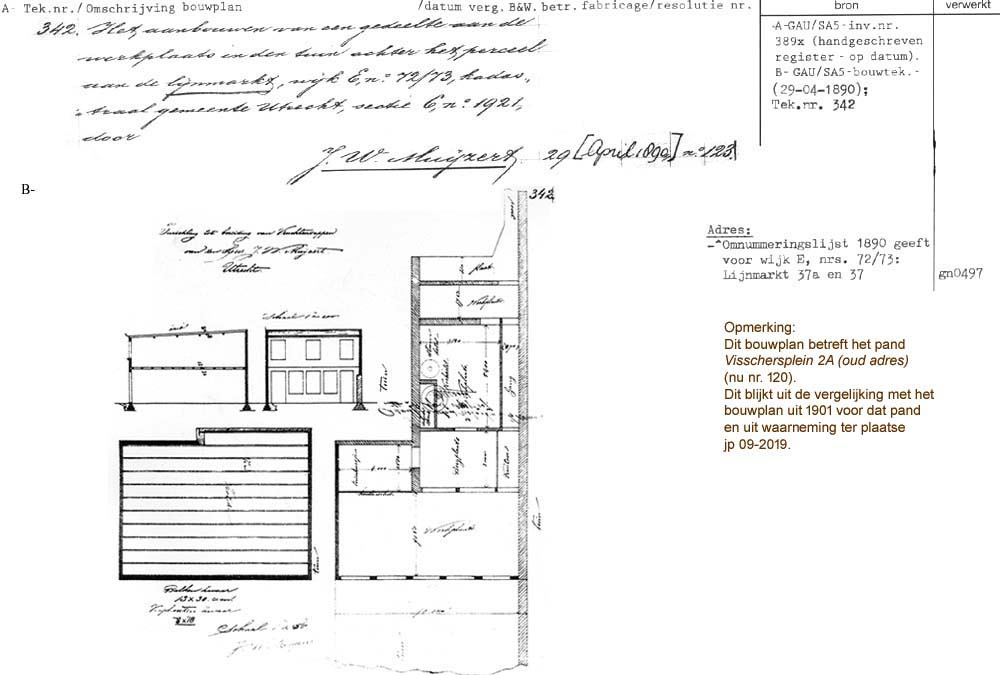 A- Tek.nr./Omschrijving bouwplan /datum verg. B&W. betr. fabricage/resolutie nr.
bron
verwerkt
342. Het aanbouwen van een gedeelte aan de
werkplaats in den tuin achter het perceel
aan de Lijnmarkt, wijk E, nº 72/73, kadas-
traal gemeente Utrecht, sectie C, nº 1921,
door
J. W. Muijzert, 29 [April 1890] nº 123.
A-GAU/SA5-inv.nr.
389x (handgeschreven
register - op datum).
B- GAU/SA5-bouwtek.-
(29-04-1890);
Tek.nr. 342
B-
342
van den Heer J. W. Muijzert
Utrecht.
Adres:
-"Omnummeringslijst 1890 geeft
voor wijk E, nrs. 72/73:
Lijnmarkt 37a en 37
gn0497
Opmerking:
Dit bouwplan betreft het pand
Visschersplein 2A (oud adres)
(nu nr. 120).
Dit blijkt uit de vergelijking met het
bouwplan uit 1901 voor dat pand
en uit waarneming ter plaatse
jp 09-2019.
tuin
Werkplaats
tuin
Schaal